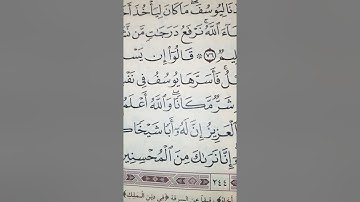 نَا لِيُوسُفَ ۖ مَا كَانَ لِيَأْخُذَ أَ
اءَ ٱللَّهُ ۚ نَرْفَعُ دَرَجَٰتٍ مَّن نَّ
لِيمٌ ٧٦ ۞ قَالُوٓا۟ إِن يَسْ
لُ ۚ فَأَسَرَّهَا يُوسُفُ فِى نَفْ
شَرٌّ مَّكَانًا ۖ وَٱللَّهُ أَعْلَمُ
ٱلْعَزِيزُ إِنَّ لَهُۥٓ أَبًا شَيْخًا كَ
إِنَّا نَرَىٰكَ مِنَ ٱلْمُحْسِنِينَ
٢٤٤
السرقة ﴿في دين الملك﴾